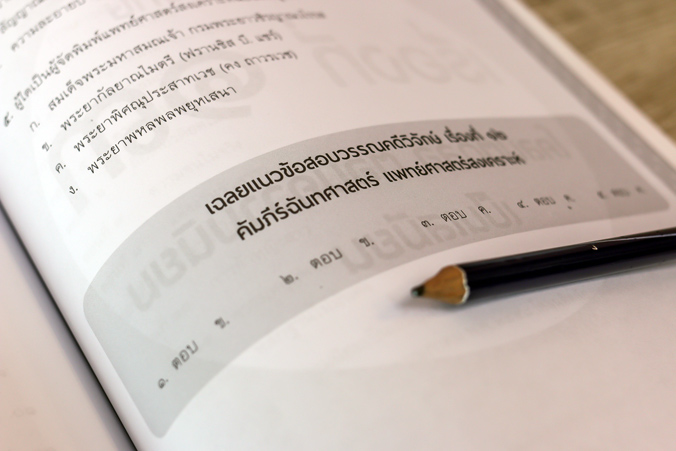 ความ
๕. ผู้ใดเป็นผู้จัดพิมพ์แพทย์ศาสตร์สงเคราะห์
ก. สมเด็จพระมหาสมณเจ้า กรมพระยาวชิรญาณวโรรส
ข. พระยากัลยาณไมตรี (ฟรานซิส บี. แซร์)
ค. พระยาพิศณุประสาทเวช (คง ถาวรเวช)
ง. พระยาพหลพลพยุหเสนา
เฉลยแนวข้อสอบวรรณคดีวิจักษ์ เรื่องที่ ๑๒
คัมภีร์ฉันทศาสตร์ แพทย์ศาสตร์สงเคราะห์
๑. ตอบ ข. ๒. ตอบ ข. ๓. ตอบ ค. ๔. ตอบ